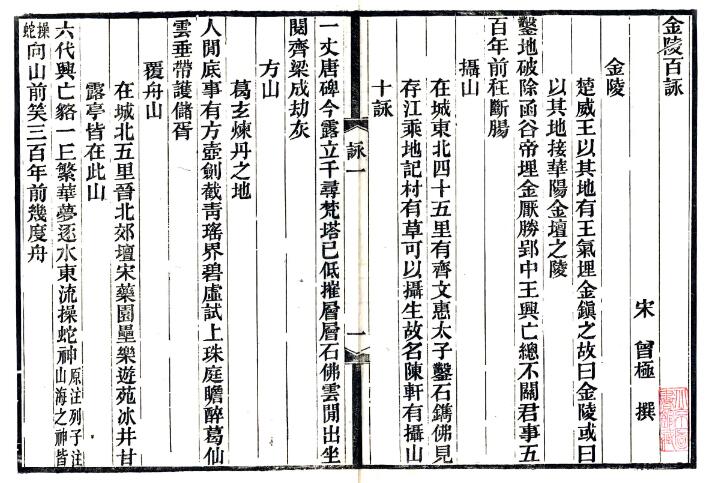 金陵百詠
宋 曾極 撰
金陵
楚威王以其地有王氣埋金鎮之故曰金陵或曰
以其地接華陽金壇之陵
鑿地破除函谷帝埋金厭勝郢中王興亡總不關君事五
百年前枉斷腸
攝山
在城東北四十五里有齊文惠太子鑿石鐫佛見
存江乘地記村有草可以攝生故名陳軒有攝山
十詠
詠一
一
一丈唐碑今露立千尋梵塔已低摧層層石佛雲閒出坐
閱齊梁成劫灰
方山
葛玄煉丹之地
人閒底事有方壺劍截靑瑤界碧虛試上珠庭瞻醉葛仙
雲垂帶護儲胥
覆舟山
在城北五里晉北郊壇宋藥園壘樂遊苑冰井甘
露亭皆在此山
六代興亡貉一𠀉繁華夢逐水東流操蛇神原注列子注山海之神皆
操蛇向山前笑三百年前幾度舟